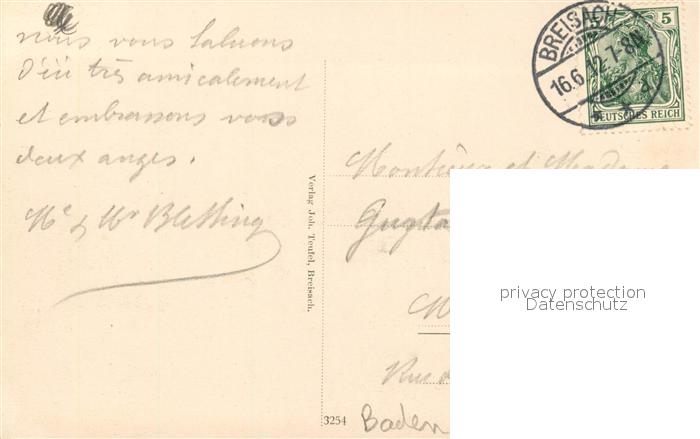 nous vous saluons
d'ici très amicalement
et embrassons vous
deux anges.
Me & Mr Blessing
BREISACH
16.6.12.7-8N
5
DEUTSCHES REICH
Verlag Joh. Teufel, Breisach.
3254
Monsieur et Madame
Rue
Baden
privacy protection
Datenschutz